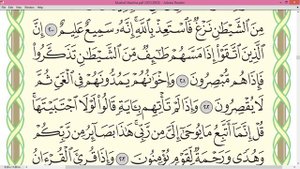 Mushaf Madina.pdf (SECURED) - Adobe Reader
مِنَ ٱلشَّيْطَٰنِ نَزْغٌ فَٱسْتَعِذْ بِٱللَّهِ إِنَّهُۥ سَمِيعٌ عَلِيمٌ ٢٠٠
إِنَّ ٱلَّذِينَ ٱتَّقَوْا۟ إِذَا مَسَّهُمْ طَٰٓئِفٌ مِّنَ ٱلشَّيْطَٰنِ تَذَكَّرُوا۟
فَإِذَا هُم مُّبْصِرُونَ ٢٠١ وَإِخْوَٰنُهُمْ يَمُدُّونَهُمْ فِى ٱلْغَىِّ ثُمَّ
لَا يُقْصِرُونَ ٢٠٢ وَإِذَا لَمْ تَأْتِهِم بِـَٔايَةٍ قَالُوا۟ لَوْلَا ٱجْتَبَيْتَهَا
قُلْ إِنَّمَآ أَتَّبِعُ مَا يُوحَىٰٓ إِلَىَّ مِن رَّبِّى هَٰذَا بَصَآئِرُ مِن رَّبِّكُمْ
وَهُدًى وَرَحْمَةٌ لِّقَوْمٍ يُؤْمِنُونَ ٢٠٣ وَإِذَا قُرِئَ ٱلْقُرْءَانُ